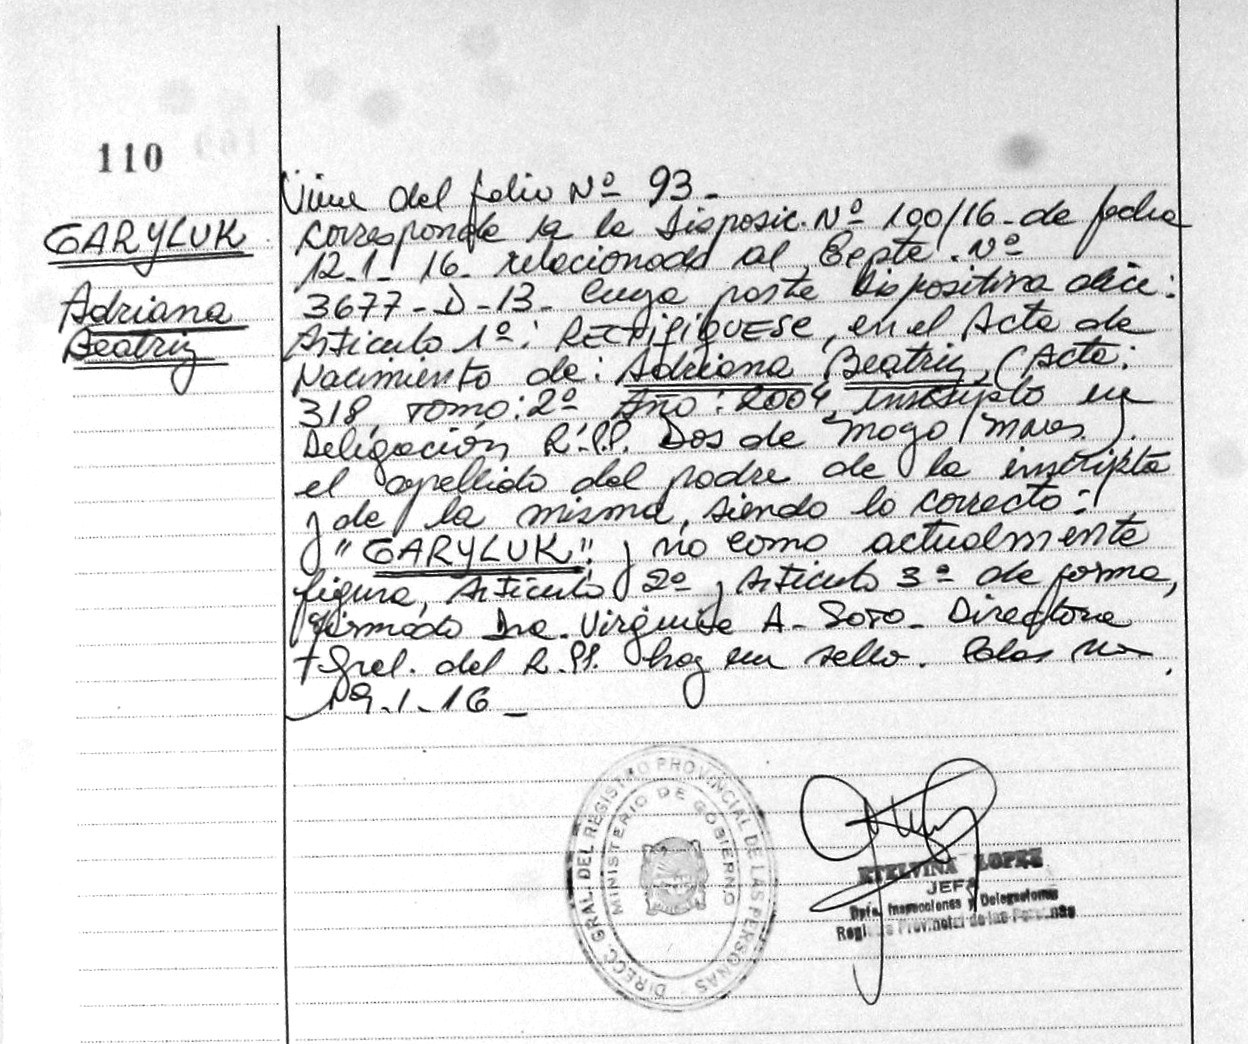 110
GARYLUK
Adriana
Beatriz
Viene del folio Nº 93-
Corresponde a la Disposic. Nº 100/16-de fecha
12-1-16- relacionado al Expte. Nº
3677-D-13- Cuya parte Dispositiva dice:
Articulo 1º: RECTIFIQUESE, en el Acta de
Nacimiento de: Adriana Beatriz, (Acta:
318, Tomo: 2º Año: 2004, inscripta en
Delegación R.PP. Dos de Mayo, Mnes.).
el apellido del padre de la inscripta
y de la misma, siendo lo correcto:
"GARYLUK", y no como actualmente
figura, Articulo 2º y Articulo 3º de forma,
Firmado Dra. Virginia A- Soto- Directora
Gral. del R.PP. hay un sello. Pdas
19-1-16-
DIRECC. GRAL. DEL REGISTRO PROVINCIAL DE LAS PERSONAS -
MINISTERIO DE GOBIERNO
ETELVINA LOPEZ
JEFA
Dpto. Inspecciones y Delegaciones
Registro Provincial de las Personas